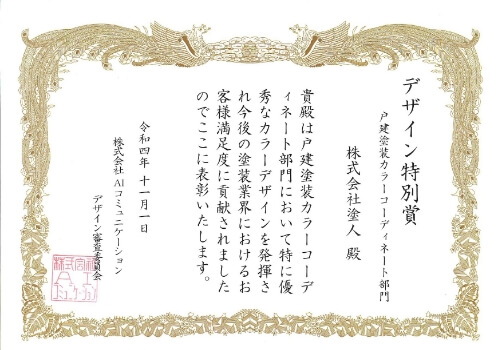 デザイン特別賞
戸建塗装カラーコーディネート部門
株式会社塗人 殿
貴殿は戸建塗装カラーコーデ
ィネート部門において特に優
秀なカラーデザインを発揮さ
れ今後の塗装業界におけるお
客様満足度に貢献されました
のでここに表彰いたします。
令和四年十一月一日
株式会社 AIコミュニケーション
デザイン審査委員会